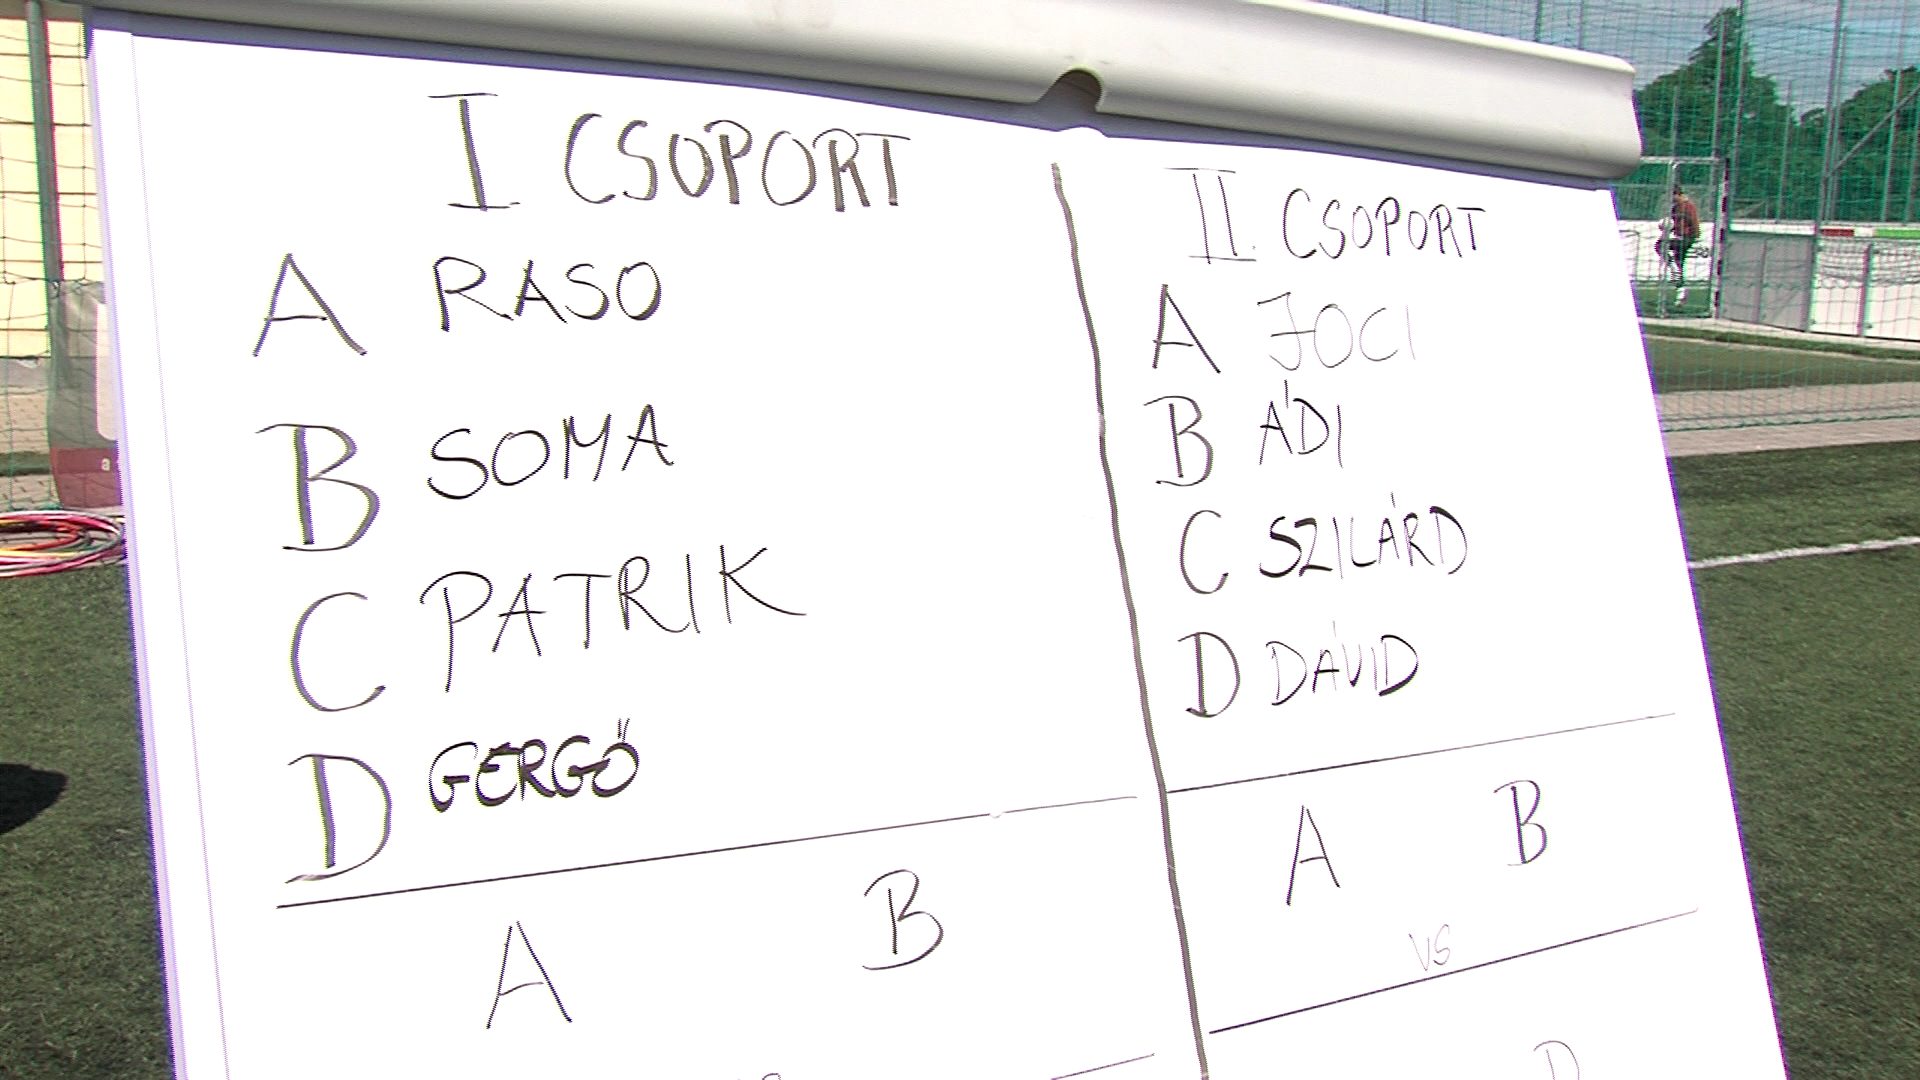 I CSOPORT
A RASO
B SOMA
C PATRIK
D GERGŐ
A B
II. CSOPORT
A JOCI
B ÁDI
C SZILÁRD
D DÁVID
A B
VS
D